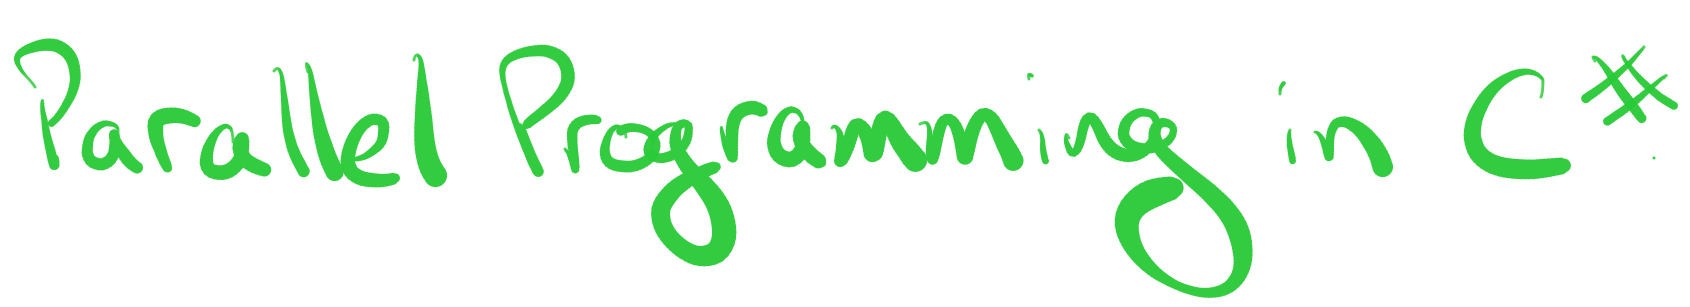 Parallel Programming in C#